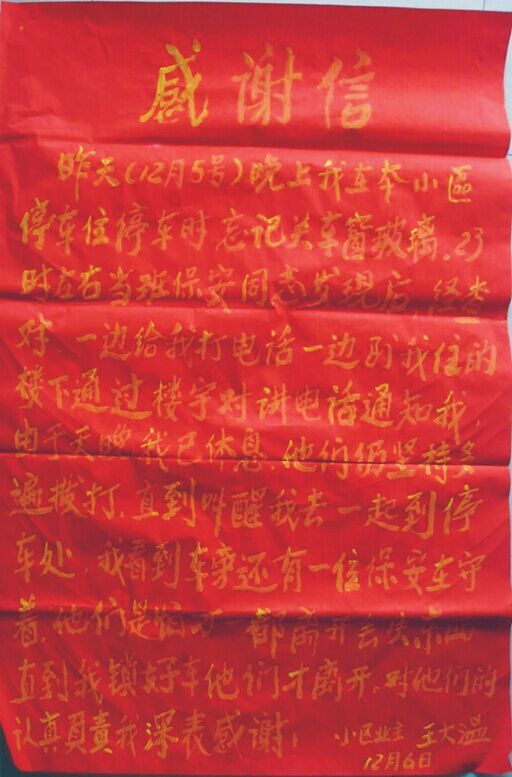 感谢信
昨天(12月5号)晚上我在本小區
停车位停车时忘记关车窗玻璃。23
时左右当班保安同志发现后,经查
对一边给我打电话一边到我住的
楼下通过楼宇对讲电话通知我,
由于天晚我已休息,他们仍坚持多
遍拨打,直到叫醒我去一起到停
车处,我看到车旁还有一位保安在守
着,他们是怕万一都离开会失
直到我锁好车他们才离开。对他们的
认真負責我深表感谢!
小区业主 王大温
12月6日